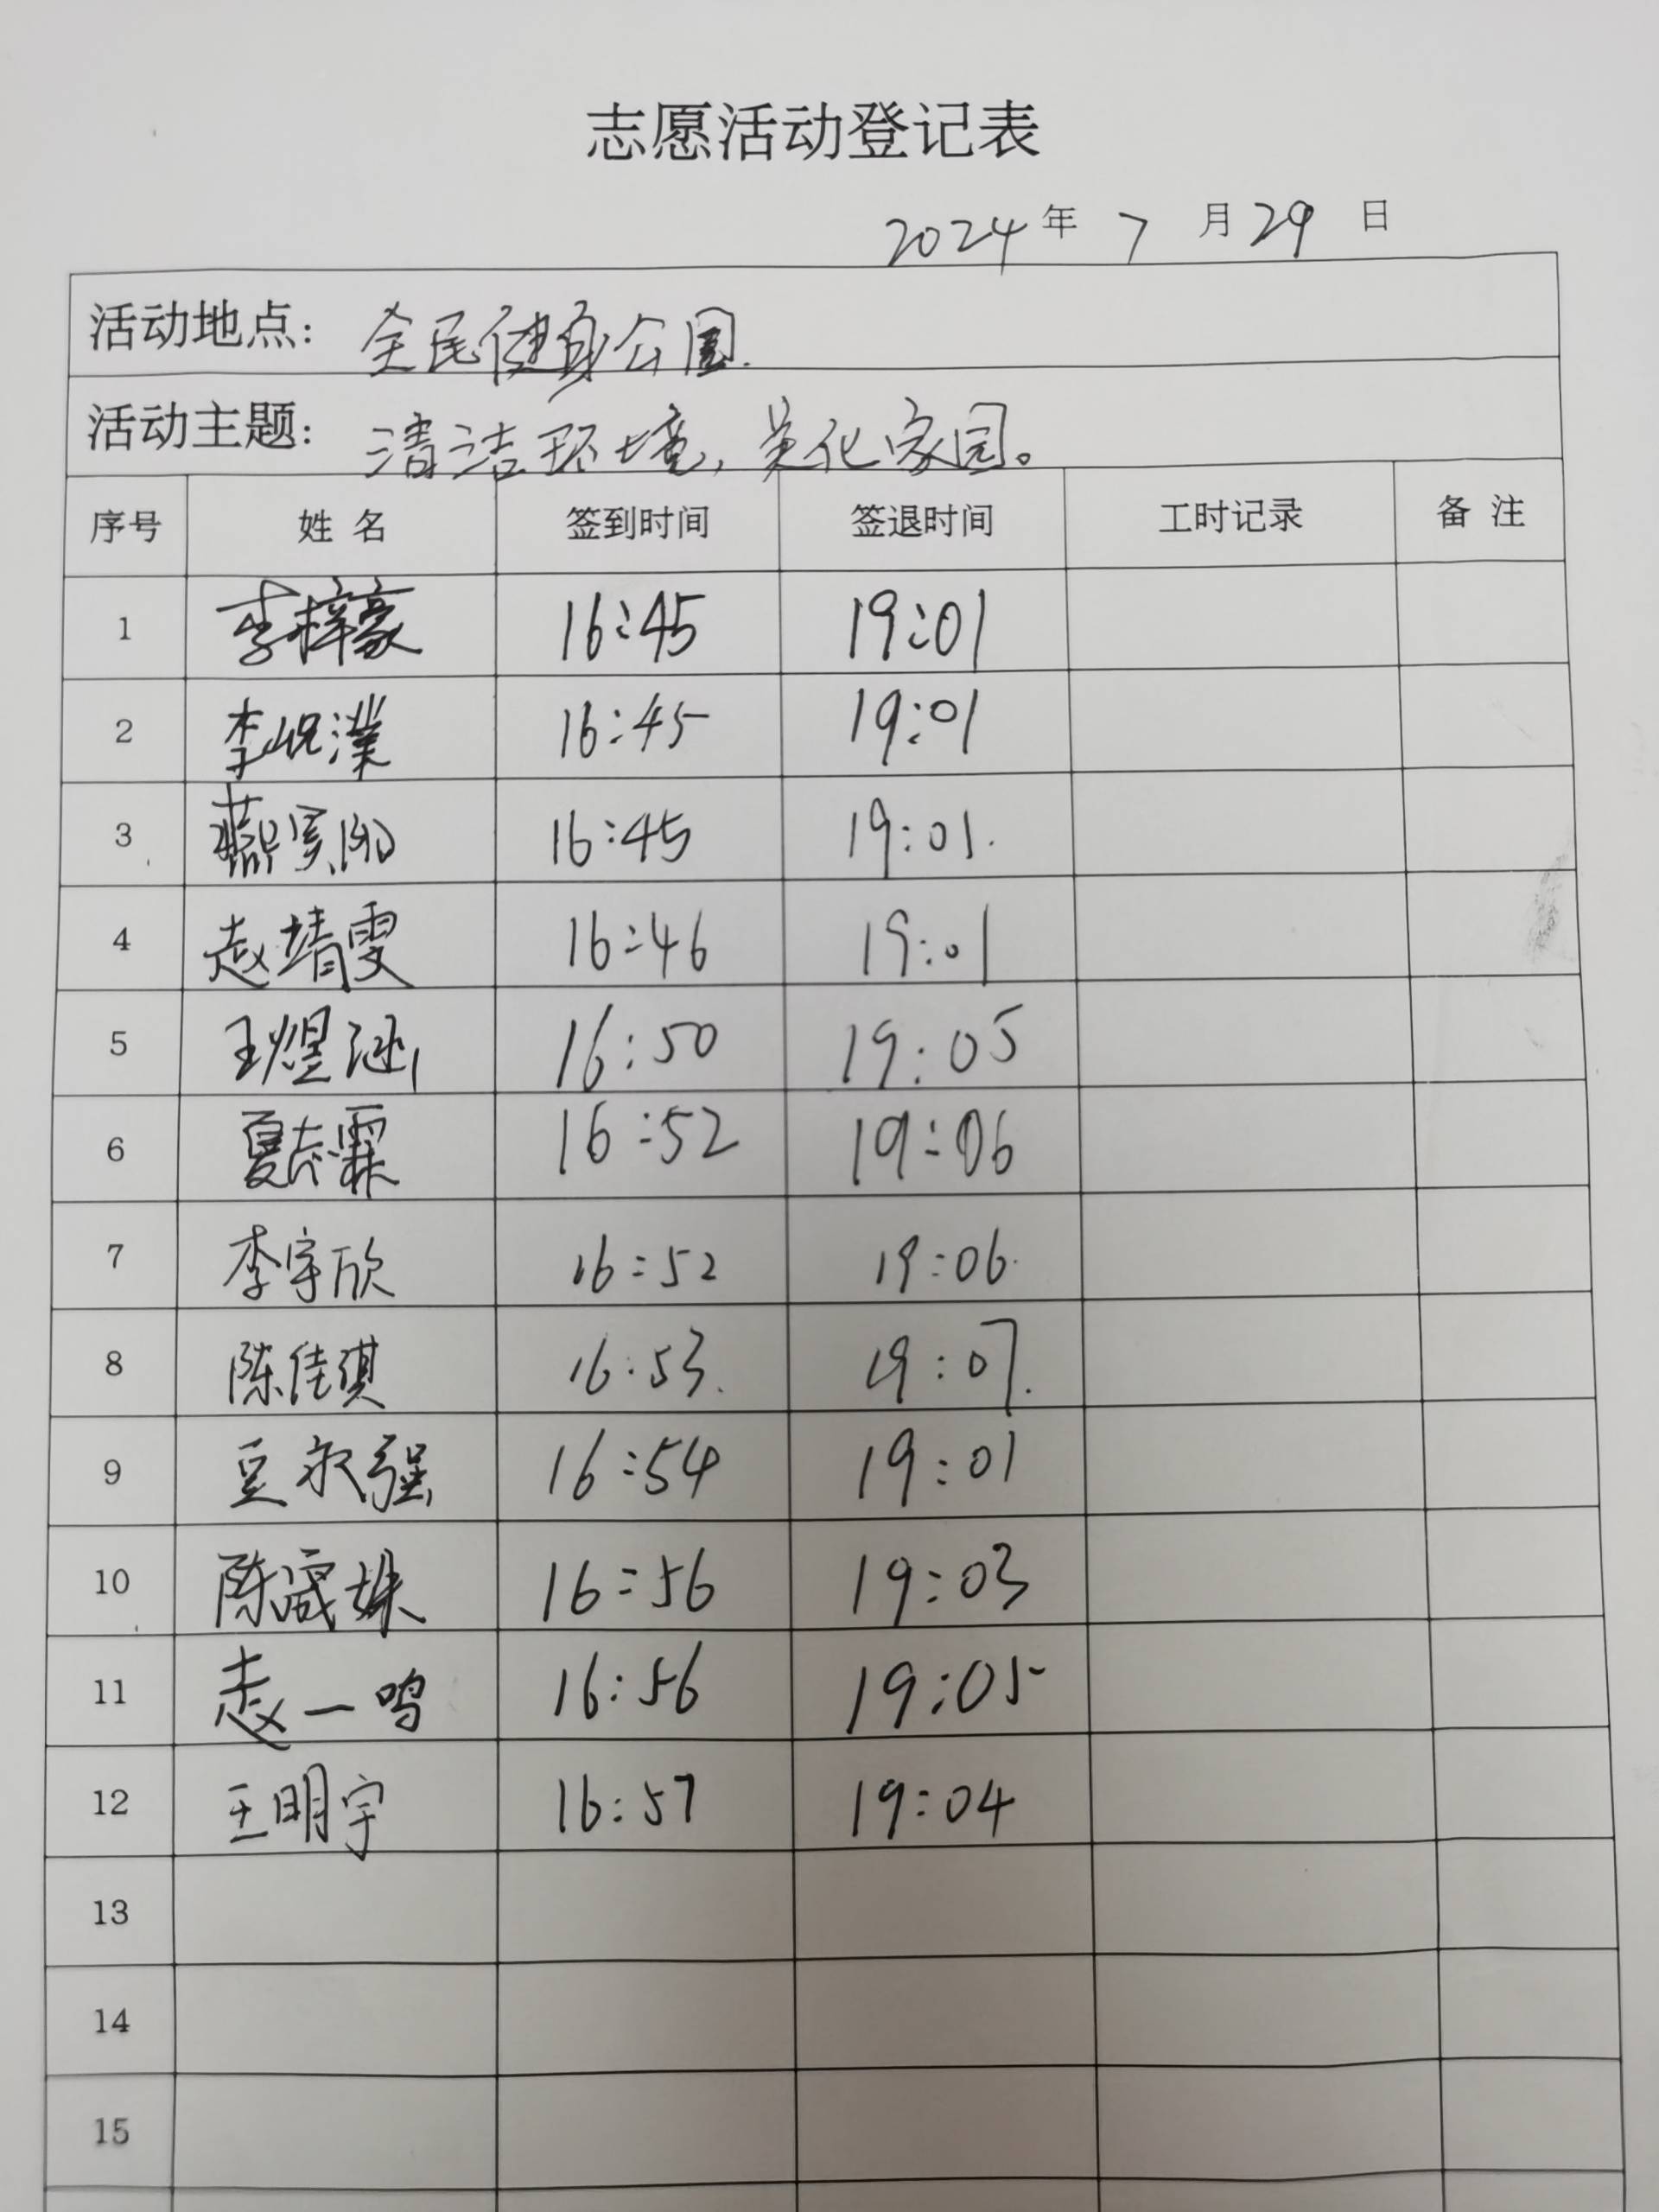 志愿活动登记表
2024年 7 月 29 日
活动地点: 全民健身公园.
活动主题: 清洁环境,美化家园。
序号 姓名 签到时间 签退时间 工时记录 备注
1 李梓豪 16:45 19:01
2 李岘濮 16:45 19:01
3 16:45 19:01.
4 赵靖雯 16:46 19:01
5 王煜涵 16:50 19:05
6 夏志霖 16:52 19:06
7 李宇欣 16:52 19:06.
8 陈佳琪 16:53. 19:07.
9 豆永强 16:54 19:01
10 陈宬姝 16:56 19:03
11 赵一鸣 16:56 19:05
12 王明宇 16:57 19:04
13
14
15